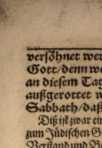 versöhnet wer
Gott/denn we
an diesem Tag
außgerottet w
Sabbath/daß
Diß ist zwar ein
zum Jüdischen G
Verstand und